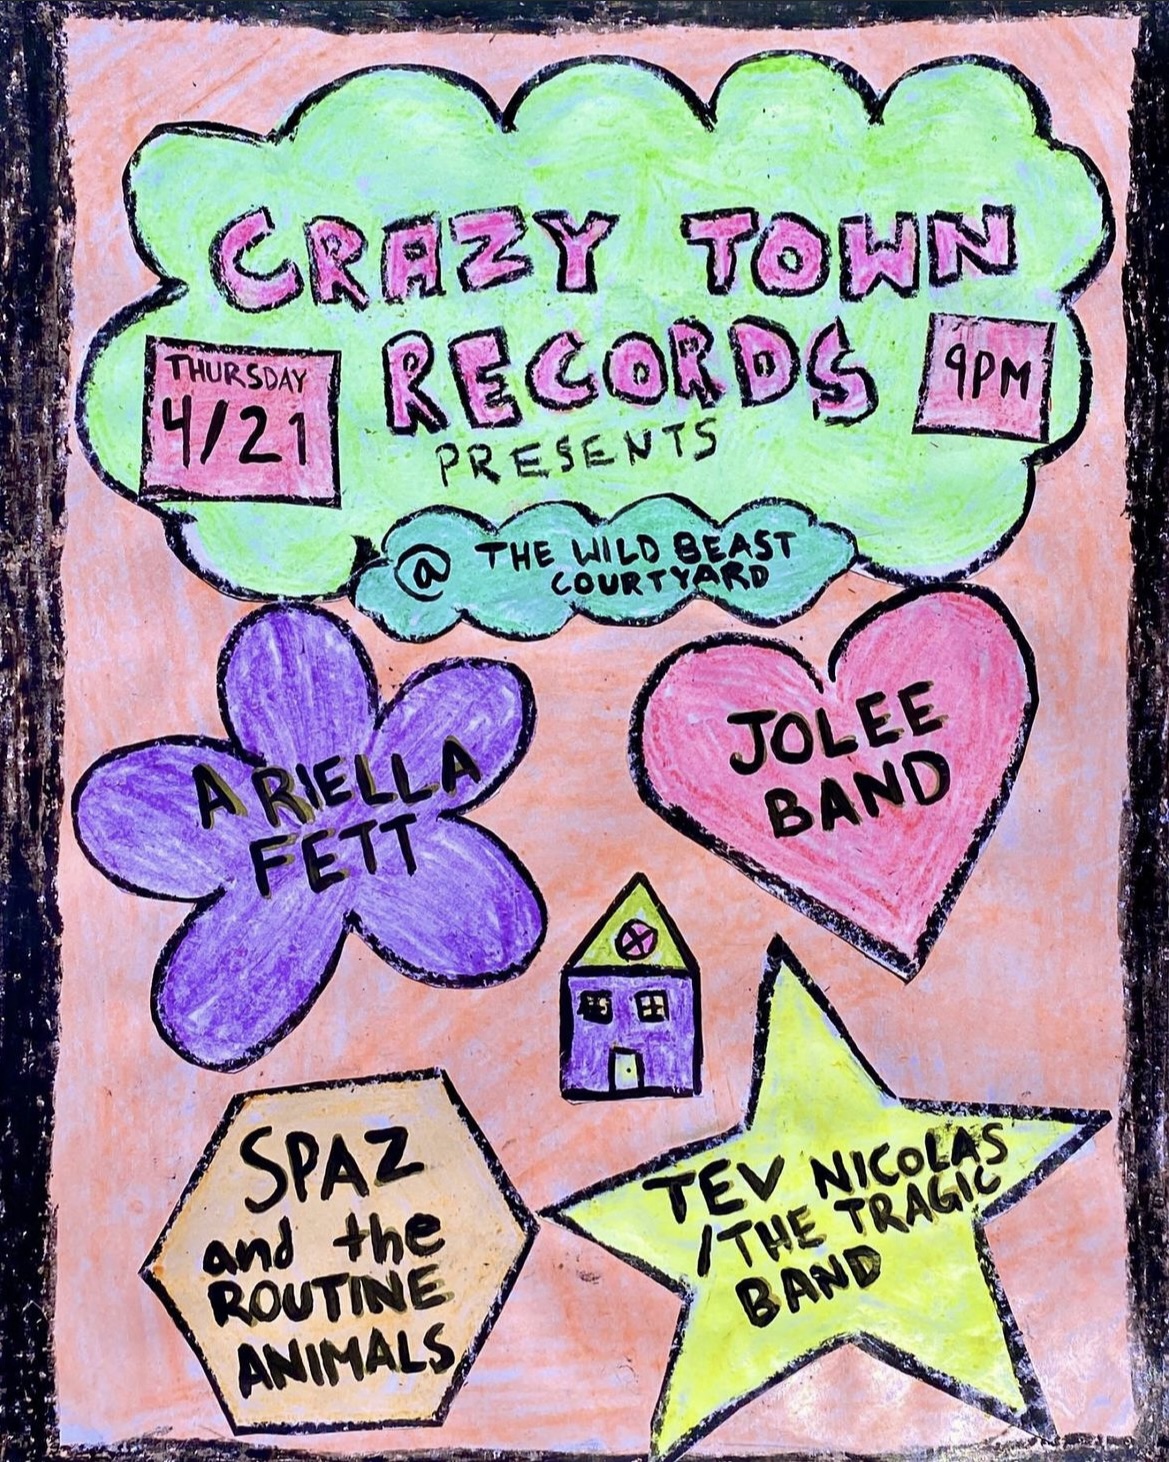 CRAZY TOWN
RECORDS
THURSDAY
4/21
9PM
PRESENTS
@ THE WILD BEAST
COURTYARD
ARIELLA
FETT
JOLEE
BAND
SPAZ
and the
ROUTINE
ANIMALS
TEV NICOLAS
/THE TRAGIC
BAND